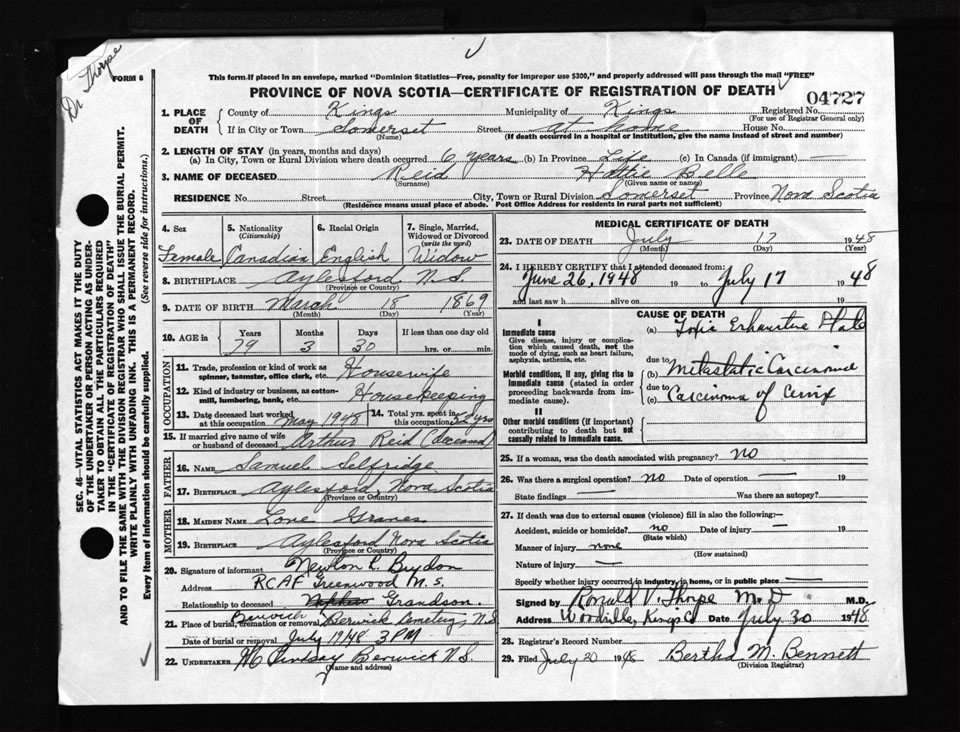 Dr Thorpe
FORM 6
This form if placed in an envelope, marked "Dominion Statistics—Free, penalty for improper use $300," and properly addressed will pass through the mail "FREE"
PROVINCE OF NOVA SCOTIA—CERTIFICATE OF REGISTRATION OF DEATH
04727
1. PLACE OF DEATH
County of Kings Municipality of Kings Registered No.
(For use of Registrar General only)
If in City or Town Somerset Street at home House No.
(Name) (If death occurred in a hospital or institution, give the name instead of street and number)
2. LENGTH OF STAY (in years, months and days)
(a) In City, Town or Rural Division where death occurred 6 years (b) In Province Life (c) In Canada (if immigrant) —
3. NAME OF DECEASED Reid Hattie Belle
(Surname) (Given name or names)
RESIDENCE No. Street City, Town or Rural Division Somerset Province Nova Scotia
(Residence means usual place of abode. Post Office Address for residents in rural parts not sufficient)
SEC. 46—VITAL STATISTICS ACT MAKES IT THE DUTY
OF THE UNDERTAKER OR PERSON ACTING AS UNDER-
TAKER TO OBTAIN ALL THE PARTICULARS REQUIRED
IN THE "CERTIFICATE OF REGISTRATION OF DEATH"
AND TO FILE THE SAME WITH THE DIVISION REGISTRAR WHO SHALL ISSUE THE BURIAL PERMIT.
WRITE PLAINLY WITH UNFADING INK. THIS IS A PERMANENT RECORD.
Every item of information should be carefully supplied. (See reverse side for instructions.)
4. Sex 5. Nationality (Citizenship) 6. Racial Origin 7. Single, Married, Widowed or Divorced (write the word)
Female Canadian English Widow
8. BIRTHPLACE Aylesford N.S.
(Province or Country)
9. DATE OF BIRTH March 18 1869
(Month) (Day) (Year)
10. AGE in Years Months Days If less than one day old
79 3 30 hrs. or min.
OCCUPATION
11. Trade, profession or kind of work as spinner, teamster, office clerk, etc. Housewife
12. Kind of industry or business, as cotton-mill, lumbering, bank, etc. Housekeeping
13. Date deceased last worked at this occupation May 1948 14. Total yrs. spent in this occupation yrs
15. If married give name of wife or husband of deceased Arthur Reid
FATHER
16. NAME Samuel Selfridge
17. BIRTHPLACE Aylesford, Nova Scotia
(Province or Country)
MOTHER
18. MAIDEN NAME Graves
19. BIRTHPLACE Aylesford Nova Scotia
(Province or Country)
20. Signature of informant Newton L. Brydon
Address RCAF Greenwood N.S.
Relationship to deceased Nephew Grandson.
21. Place of burial, cremation or removal Berwick Berwick N.S.
Date of burial or removal July 19 48 3 PM
22. UNDERTAKER Lindsay Berwick N.S.
(Name and address)
MEDICAL CERTIFICATE OF DEATH
23. DATE OF DEATH July 17 1948
(Month) (Day) (Year)
24. I HEREBY CERTIFY that I attended deceased from:
June 26, 1948 19 to July 17 1948
and last saw h alive on 19
CAUSE OF DEATH
I
Immediate cause
Give disease, injury or complication which caused death, not the mode of dying, such as heart failure, asphyxia, asthenia, etc.
(a) Exhaustive State
due to
Morbid conditions, if any, giving rise to immediate cause (stated in order proceeding backwards from immediate cause).
(b) Metastatic Carcinoma
due to
(c) Carcinoma of Cervix
II
Other morbid conditions (if important) contributing to death but not causally related to immediate cause.
25. If a woman, was the death associated with pregnancy? NO
26. Was there a surgical operation? no Date of operation — 19
State findings — Was there autopsy?
27. If death was due to external causes (violence) fill in also the following:—
Accident, suicide or homicide? no Date of injury — 19
(State which)
Manner of injury none
(How sustained)
Nature of injury —
Specify whether injury occurred in industry, in home, or in public place —
Signed by Ronald V. Thorpe M.D M.D.
Address Woodville, Kings Co Date July 30 1948
28. Registrar's Record Number
29. Filed July 20 1948 Bertha M. Bennett
(Division Registrar)